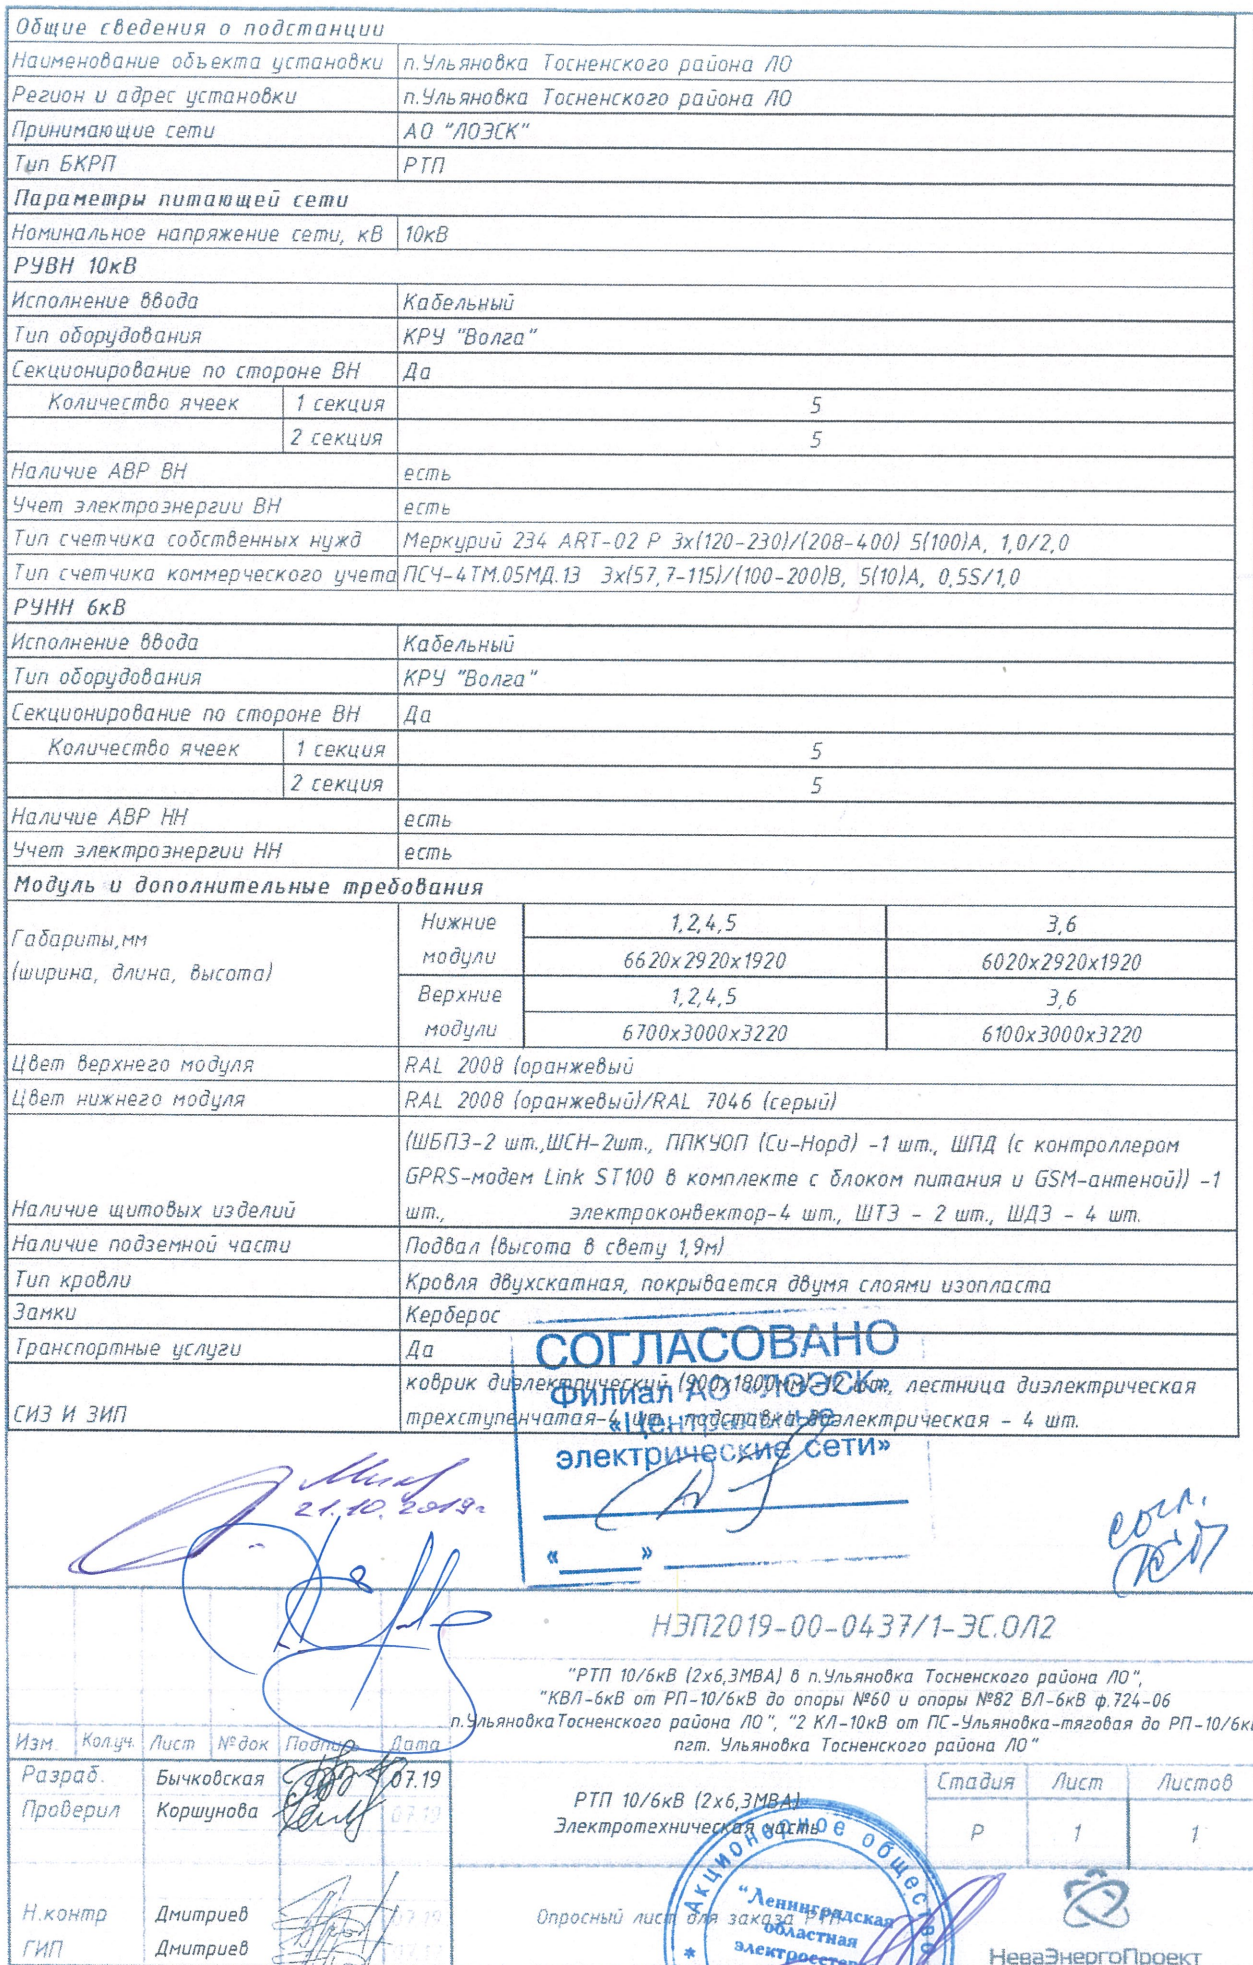 Общие сведения о подстанции
Наименование объекта установки п.Ульяновка Тосненского района ЛО
Регион и адрес установки п.Ульяновка Тосненского района ЛО
Принимающие сети АО "ЛОЭСК"
Тип БКРП РТП
Параметры питающей сети
Номинальное напряжение сети, кВ 10кВ
РУВН 10кВ
Исполнение ввода Кабельный
Тип оборудования КРУ "Волга"
Секционирование по стороне ВН Да
Количество ячеек 1 секция 5
2 секция 5
Наличие АВР ВН есть
Учет электроэнергии ВН есть
Тип счетчика собственных нужд Меркурий 234 ART-02 P 3х(120-230)/(208-400) 5(100)А, 1,0/2,0
Тип счетчика коммерческого учета ПСЧ-4ТМ.05МД.13 3х(57,7-115)/(100-200)В, 5(10)А, 0,5S/1,0
РУНН 6кВ
Исполнение ввода Кабельный
Тип оборудования КРУ "Волга"
Секционирование по стороне ВН Да
Количество ячеек 1 секция 5
2 секция 5
Наличие АВР НН есть
Учет электроэнергии НН есть
Модуль и дополнительные требования
Габариты,мм
(ширина, длина, высота)
Нижние модули 1,2,4,5 3,6
6620х2920х1920 6020х2920х1920
Верхние модули 1,2,4,5 3,6
6700х3000х3220 6100х3000х3220
Цвет верхнего модуля RAL 2008 (оранжевый
Цвет нижнего модуля RAL 2008 (оранжевый)/RAL 7046 (серый)
Наличие щитовых изделий
(ШБПЗ-2 шт.,ШСН-2шт., ППКУОП (Си-Норд) -1 шт., ШПД (с контроллером
GPRS-модем Link ST100 в комплекте с блоком питания и GSM-антеной)) -1
шт., электроконвектор-4 шт., ШТЗ - 2 шт., ШДЗ - 4 шт.
Наличие подземной части Подвал (высота в свету 1,9м)
Тип кровли Кровля двухскатная, покрывается двумя слоями изопласта
Замки Керберос
Транспортные услуги Да
СИЗ И ЗИП
коврик диэлектрический (900х1800мм)-12 шт., лестница диэлектрическая
трехступенчатая-4 шт., подставка диэлектрическая - 4 шт.
СОГЛАСОВАНО
Филиал АО «ЛОЭСК»
«Центральные
электрические сети»
« »
21.10.2019г
согл.
НЭП2019-00-0437/1-ЭС.ОЛ2
"РТП 10/6кВ (2х6,3МВА) в п.Ульяновка Тосненского района ЛО",
"КВЛ-6кВ от РП-10/6кВ до опоры №60 и опоры №82 ВЛ-6кВ ф.724-06
п.УльяновкаТосненского района ЛО", "2 КЛ-10кВ от ПС-Ульяновка-тяговая до РП-10/6кВ
пгт. Ульяновка Тосненского района ЛО"
Изм. Кол.уч. Лист №док Подпись Дата
Разраб. Бычковская 07.19
Проверил Коршунова 07.19
Н.контр Дмитриев 07.19
ГИП Дмитриев 07.19
РТП 10/6кВ (2х6,3МВА)
Электротехническая часть
Стадия Лист Листов
Р 1 1
Опросный лист для заказа РТП
Акционерное общество
"Ленинградская
областная
НеваЭнергоПроект